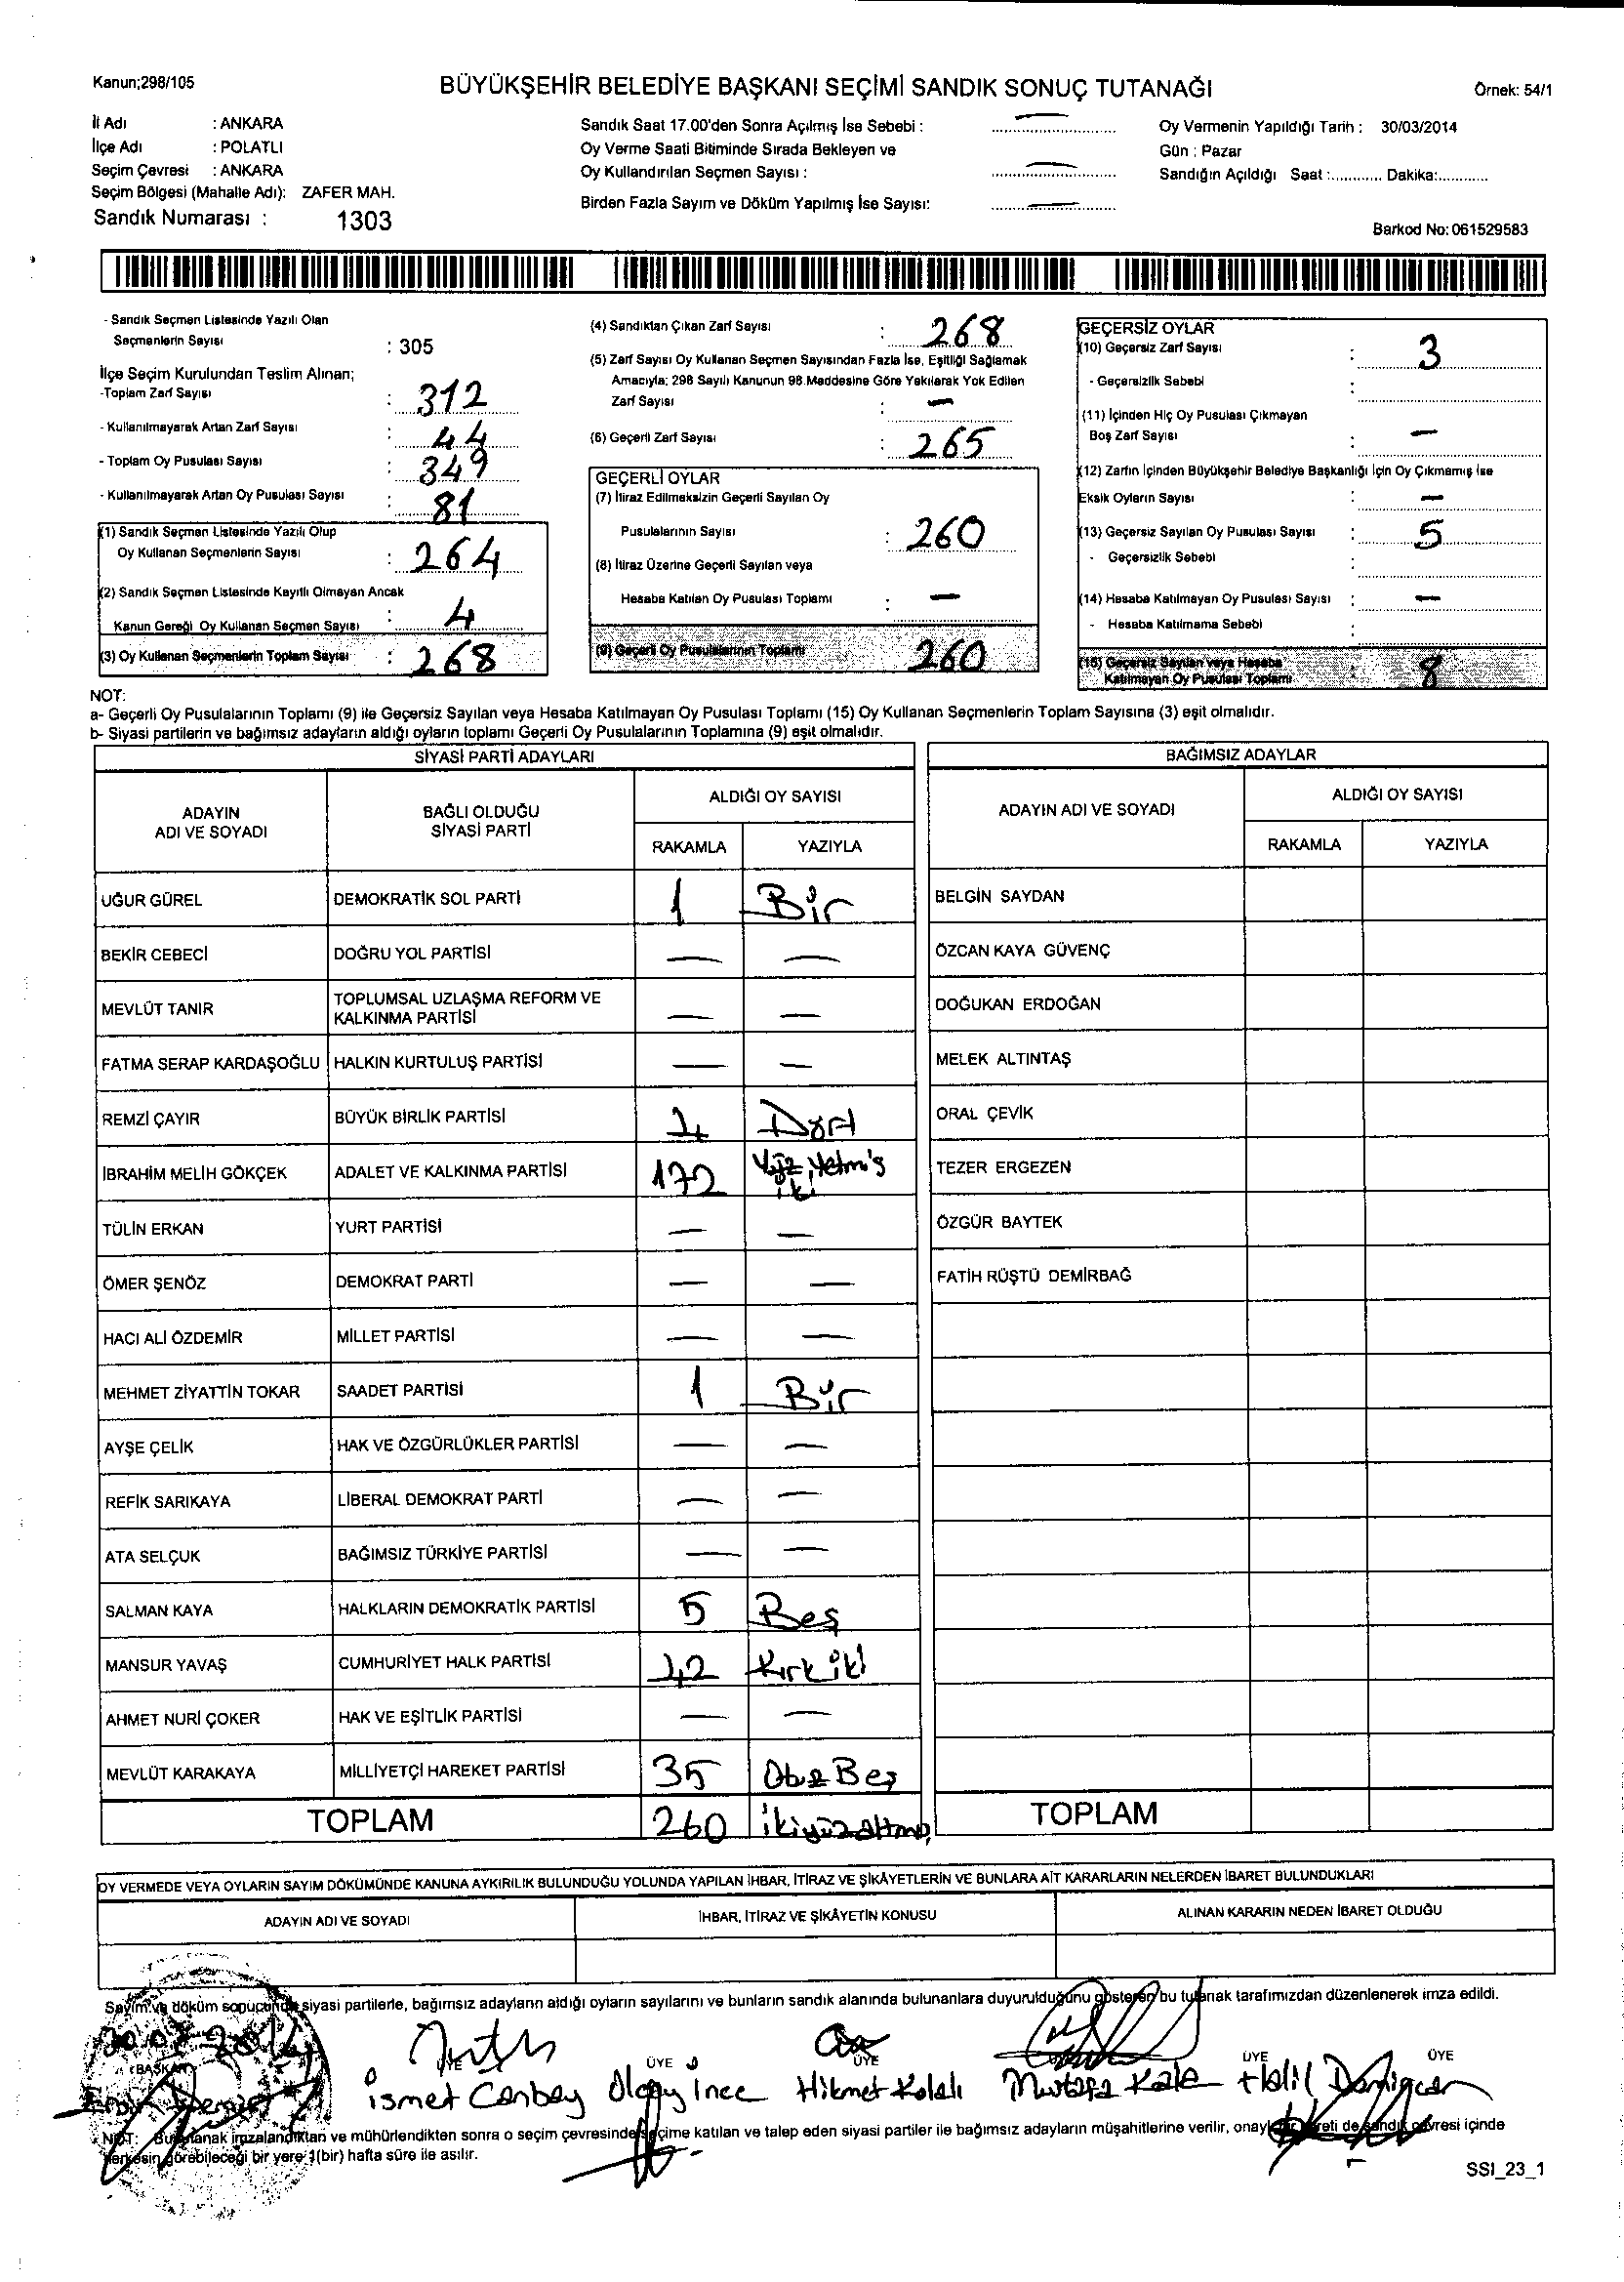 Kanun;298/105
BÜYÜKŞEHİR BELEDİYE BAŞKANI SEÇİMİ SANDIK SONUÇ TUTANAĞI
Örnek: 54/1
İl Adı : ANKARA
İlçe Adı : POLATLI
Seçim Çevresi : ANKARA
Seçim Bölgesi (Mahalle Adı): ZAFER MAH.
Sandık Numarası : 1303
Sandık Saat 17.00'den Sonra Açılmış İse Sebebi : —
Oy Verme Saati Bitiminde Sırada Bekleyen ve
Oy Kullandırılan Seçmen Sayısı : —
Birden Fazla Sayım ve Döküm Yapılmış İse Sayısı: —
Oy Vermenin Yapıldığı Tarih : 30/03/2014
Gün : Pazar
Sandığın Açıldığı Saat :............ Dakika:............
Barkod No: 061529583
- Sandık Seçmen Listesinde Yazılı Olan
Seçmenlerin Sayısı : 305
İlçe Seçim Kurulundan Teslim Alınan;
-Toplam Zarf Sayısı : 312
- Kullanılmayarak Artan Zarf Sayısı : 44
- Toplam Oy Pusulası Sayısı : 349
- Kullanılmayarak Artan Oy Pusulası Sayısı : 81
(1) Sandık Seçmen Listesinde Yazılı Olup
Oy Kullanan Seçmenlerin Sayısı : 264
(2) Sandık Seçmen Listesinde Kayıtlı Olmayan Ancak
Kanun Gereği Oy Kullanan Seçmen Sayısı : 4
(3) Oy Kullanan Seçmenlerin Toplam Sayısı : 268
(4) Sandıktan Çıkan Zarf Sayısı : 268
(5) Zarf Sayısı Oy Kullanan Seçmen Sayısından Fazla İse, Eşitliği Sağlamak
Amacıyla; 298 Sayılı Kanunun 98.Maddesine Göre Yakılarak Yok Edilen
Zarf Sayısı : —
(6) Geçerli Zarf Sayısı : 265
GEÇERLİ OYLAR
(7) İtiraz Edilmeksizin Geçerli Sayılan Oy
Pusulalarının Sayısı : 260
(8) İtiraz Üzerine Geçerli Sayılan veya
Hesaba Katılan Oy Pusulası Toplamı : —
(9) Geçerli Oy Pusulalarının Toplamı 260
GEÇERSİZ OYLAR
(10) Geçersiz Zarf Sayısı : 3
- Geçersizlik Sebebi :
(11) İçinden Hiç Oy Pusulası Çıkmayan
Boş Zarf Sayısı : —
(12) Zarfın İçinden Büyükşehir Belediye Başkanlığı İçin Oy Çıkmamış İse
Eksik Oyların Sayısı : —
(13) Geçersiz Sayılan Oy Pusulası Sayısı : 5
- Geçersizlik Sebebi :
(14) Hesaba Katılmayan Oy Pusulası Sayısı : —
- Hesaba Katılmama Sebebi :
(15) Geçersiz Sayılan veya Hesaba
Katılmayan Oy Pusulası Toplamı : 8
NOT:
a- Geçerli Oy Pusulalarının Toplamı (9) ile Geçersiz Sayılan veya Hesaba Katılmayan Oy Pusulası Toplamı (15) Oy Kullanan Seçmenlerin Toplam Sayısına (3) eşit olmalıdır.
b- Siyasi partilerin ve bağımsız adayların aldığı oyların toplamı Geçerli Oy Pusulalarının Toplamına (9) eşit olmalıdır.
SİYASİ PARTİ ADAYLARI
ADAYIN ADI VE SOYADI
BAĞLI OLDUĞU SİYASİ PARTİ
ALDIĞI OY SAYISI
RAKAMLA YAZIYLA
UĞUR GÜREL DEMOKRATİK SOL PARTİ 1 Bir
BEKİR CEBECİ DOĞRU YOL PARTİSİ — —
MEVLÜT TANIR TOPLUMSAL UZLAŞMA REFORM VE
KALKINMA PARTİSİ — —
FATMA SERAP KARDAŞOĞLU HALKIN KURTULUŞ PARTİSİ — —
REMZİ ÇAYIR BÜYÜK BİRLİK PARTİSİ 4 Dört
İBRAHİM MELİH GÖKÇEK ADALET VE KALKINMA PARTİSİ 172 Yüz yetmiş
iki
TÜLİN ERKAN YURT PARTİSİ — —
ÖMER ŞENÖZ DEMOKRAT PARTİ — —
HACI ALİ ÖZDEMİR MİLLET PARTİSİ — —
MEHMET ZİYATTİN TOKAR SAADET PARTİSİ 1 Bir
AYŞE ÇELİK HAK VE ÖZGÜRLÜKLER PARTİSİ — —
REFİK SARIKAYA LİBERAL DEMOKRAT PARTİ — —
ATA SELÇUK BAĞIMSIZ TÜRKİYE PARTİSİ — —
SALMAN KAYA HALKLARIN DEMOKRATİK PARTİSİ 5 Beş
MANSUR YAVAŞ CUMHURİYET HALK PARTİSİ 42 Kırk iki
AHMET NURİ ÇOKER HAK VE EŞİTLİK PARTİSİ — —
MEVLÜT KARAKAYA MİLLİYETÇİ HAREKET PARTİSİ 35 Otuz Beş
TOPLAM 260 ikiyüzaltmış
BAĞIMSIZ ADAYLAR
ADAYIN ADI VE SOYADI
ALDIĞI OY SAYISI
RAKAMLA YAZIYLA
BELGİN SAYDAN
ÖZCAN KAYA GÜVENÇ
DOĞUKAN ERDOĞAN
MELEK ALTINTAŞ
ORAL ÇEVİK
TEZER ERGEZEN
ÖZGÜR BAYTEK
FATİH RÜŞTÜ DEMİRBAĞ
TOPLAM
OY VERMEDE VEYA OYLARIN SAYIM DÖKÜMÜNDE KANUNA AYKIRILIK BULUNDUĞU YOLUNDA YAPILAN İHBAR, İTİRAZ VE ŞİKÂYETLERİN VE BUNLARA AİT KARARLARIN NELERDEN İBARET BULUNDUKLARI
ADAYIN ADI VE SOYADI İHBAR, İTİRAZ VE ŞİKÂYETİN KONUSU ALINAN KARARIN NEDEN İBARET OLDUĞU
Sayım ve döküm sonucunda siyasi partilerle, bağımsız adayların aldığı oyların sayılarını ve bunların sandık alanında bulunanlara duyurulduğunu gösteren bu tutanak tarafımızdan düzenlenerek imza edildi.
BAŞKAN ÜYE ÜYE ÜYE ÜYE ÜYE
ismet Canbay Olgay ince Hikmet Kolalı Mustafa Kale Halil
NOT: Bu tutanak imzalandıktan ve mühürlendikten sonra o seçim çevresinde seçime katılan ve talep eden siyasi partiler ile bağımsız adayların müşahitlerine verilir, onaylı bir sureti de sandık çevresi içinde
herkesin görebileceği bir yere 1(bir) hafta süre ile asılır.
SSI_23_1